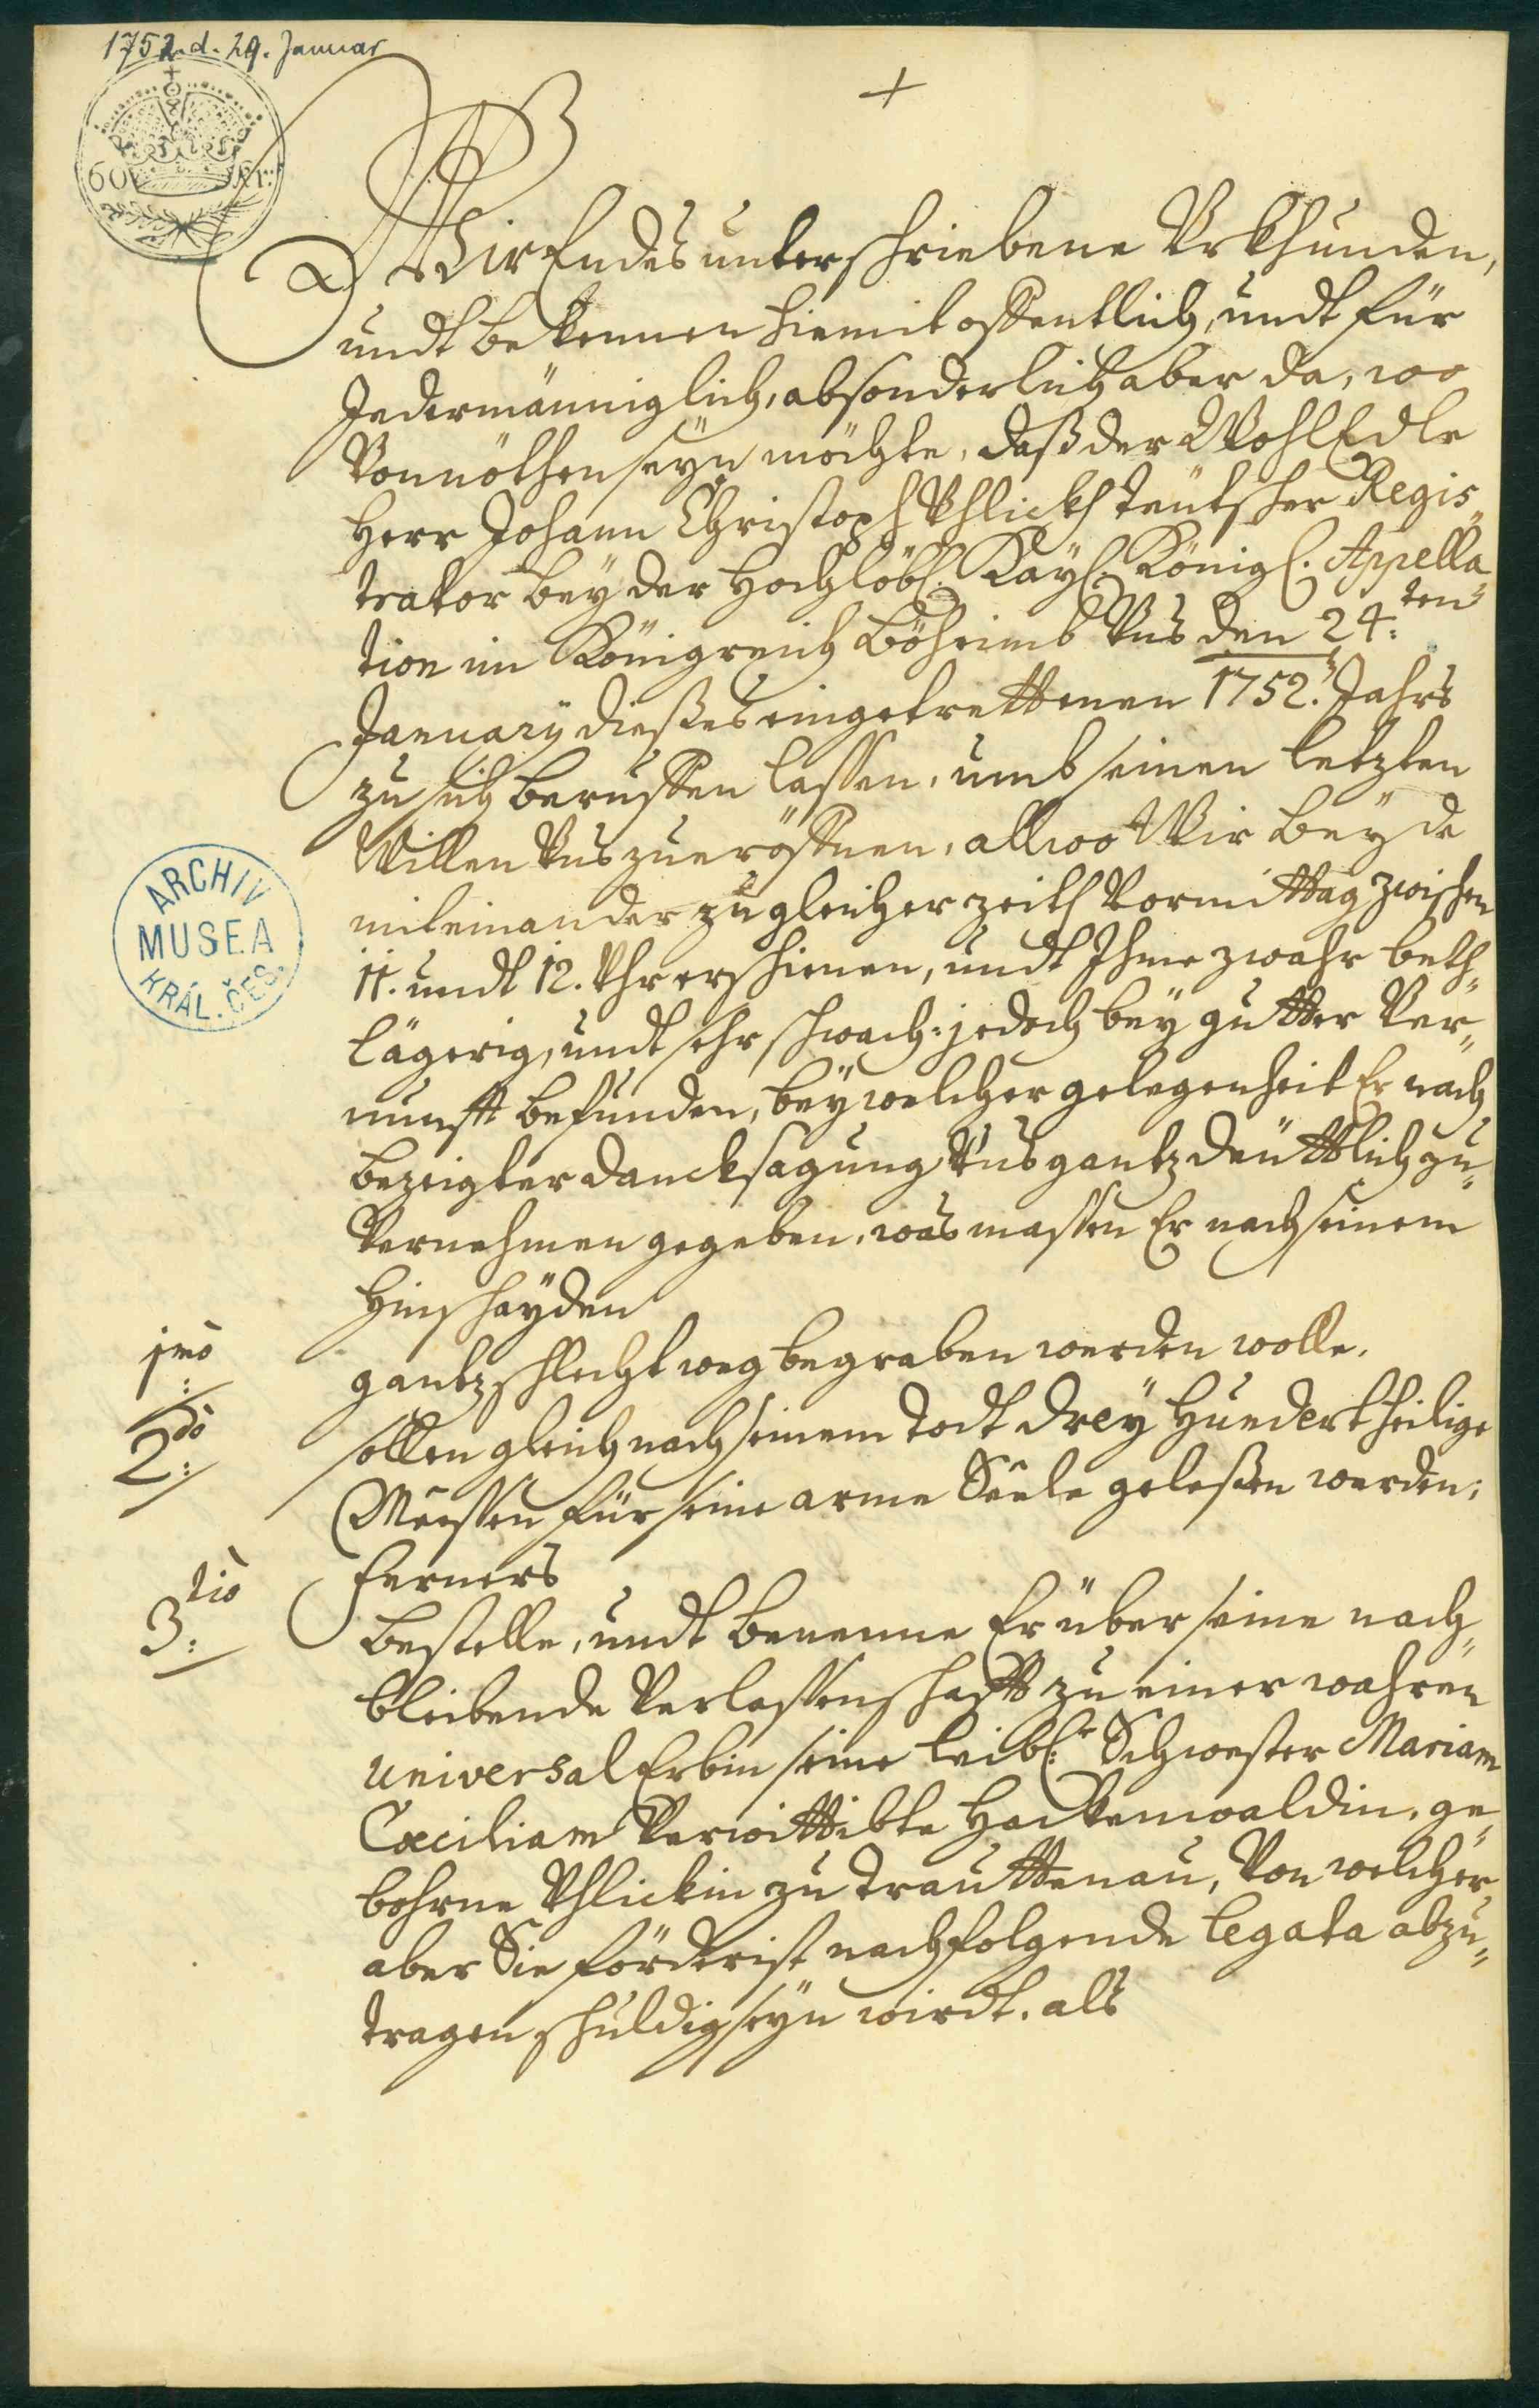 1752. d. 29. Januar
+
60 Kr:
Wir Endes unterschriebene Urkhunden,
undt bekennen hiemit offentlich, undt für
Jedermänniglich, absonderlich aber da, wo
Vonnöthen seyn möchte, daß der WohlEdle
Herr Johann Christoph Uhlickh teütscher Regis„
trator bey der Hochlöbl: Kayl: Königl. Appella„
tion im Königreich Böheimb Uns den 24:ten
January dießes eingetrettenen 1752. Jahrs
zu sich beruffen lassen, umb seinen letzten
Willen Uns zueröffnen, allwo Wir beyde
miteinander zu gleicher zeith Vormittag zwischen
11. undt 12. Uhr erschienen, undt Ihme zwahr beth„
lägerig, undt sehr schwach: jedoch bey gutter Ver„
nunfft befunden, bey welcher gelegenheit Er nach
bezeigter dancksagung Uns gantz deüttlich zu„
Vernehmen gegeben, was massen Er nach seinem
Hinscheyden
1mo
gantz schlecht weg begraben werden wolle.
2:do
sollen gleich nach seinem todt drey Hundert heilige
Meessen für seine arme Seele geleßen werden;
ferners
3:tio
bestelle, undt benenne Er über seine nach„
bleibende Verlassenschafft zu einer wahren
universal Erbin seine leibl:e Schwester Mariam
Cæciliam Verwittibte Hackenwaldin, ge„
bohrne Uhlickin zu Trauttenau, Von welcher
aber Sie förderist nachfolgende legata abzu„
tragen schuldig seyn wirdt. als
ARCHIV
MUSEA
KRÁL. ČES.